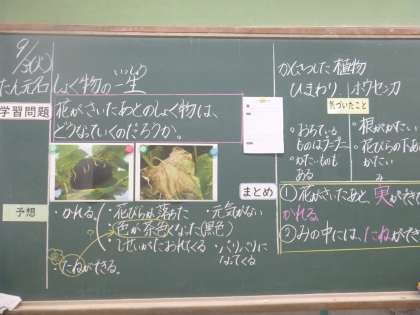 9/3(火)
たん元名 しょく物の一生
いっしょう
学習問題
花がさいたあとのしょく物は、
どうなっていくのだろうか。
予想
・かれる!
・花びらが落ちた
・元気がない
色が茶色くなった(黒色)
・しせいがたおれてくる
・パリパリになってくる
・たねができる。
かんさつした植物
ひまわり
ホウセンカ
気づいたこと
・かたいものもある
・根がかたい
・花びらの下が
かたい
み
まとめ
①花がさいたあと実ができて
かれる。
②みの中には、たねができ